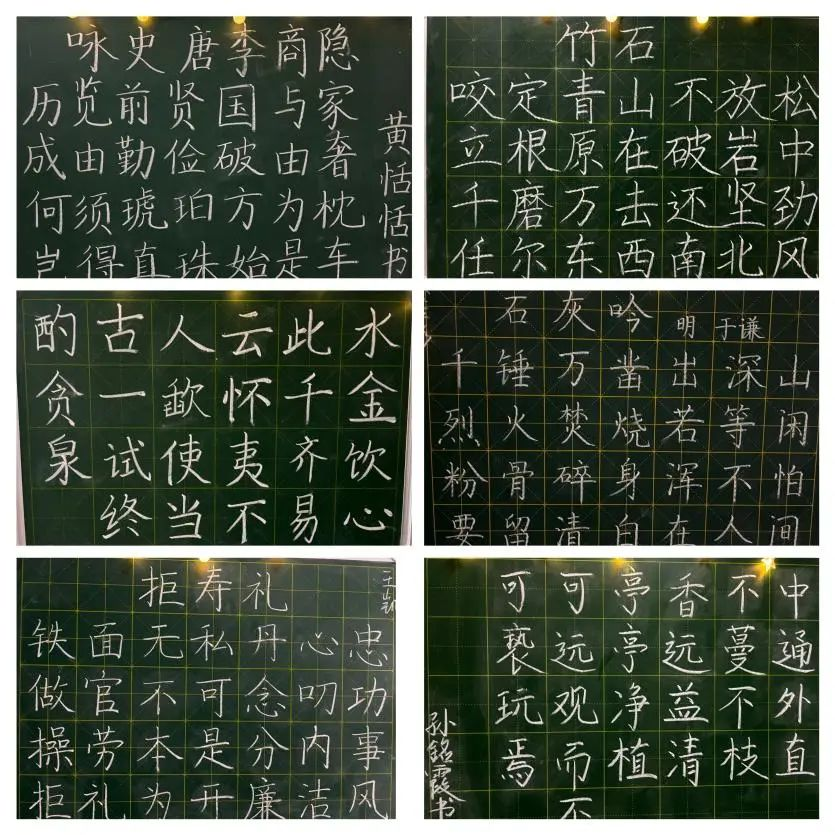 咏史 唐李商隐
历览前贤国与家
成由勤俭破由奢
何须琥珀方为枕
岂得真珠始是车
黄恬恬书
竹石
咬定青山不放松
立根原在破岩中
千磨万击还坚劲
任尔东西南北风
酌贪泉
古人云此水
一歃怀千金
试使夷齐饮
终当不易心
石灰吟 明 于谦
千锤万凿出深山
烈火焚烧若等闲
粉骨碎身浑不怕
要留清白在人间
拒寿礼
铁面无私丹心忠
做官不可念叨功
操劳本是分内事
拒礼为开廉洁风
中通外直
不蔓不枝
香远益清
亭亭净植
可远观而不
可亵玩焉
孙铭霞书